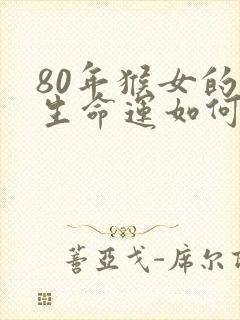 80年猴女的
生命运如何
蓍亚戈-席尔